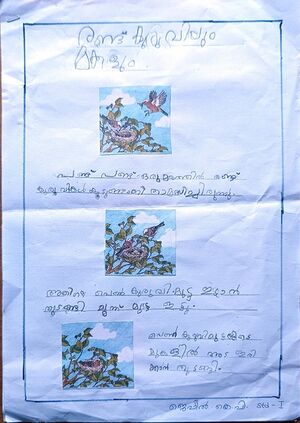 രണ്ട് കുരുവിയും
മക്കളും.
പണ്ട് പണ്ട് ഒരു മരത്തിൽ രണ്ട്
കുരുവികൾ കൂടുണ്ടാക്കി താമസിച്ചിരുന്നു.
അതിലെ പെൺ കുരുവി മുട്ട ഇടാൻ
തുടങ്ങി മൂന്ന് മുട്ട ഇട്ടു.
പെൺ കുരുവി മുട്ടയുടെ
മുകളിൽ അട ഇരി
ക്കാൻ തുടങ്ങി.
ജെഫിൻ ഐ.പി. std - I